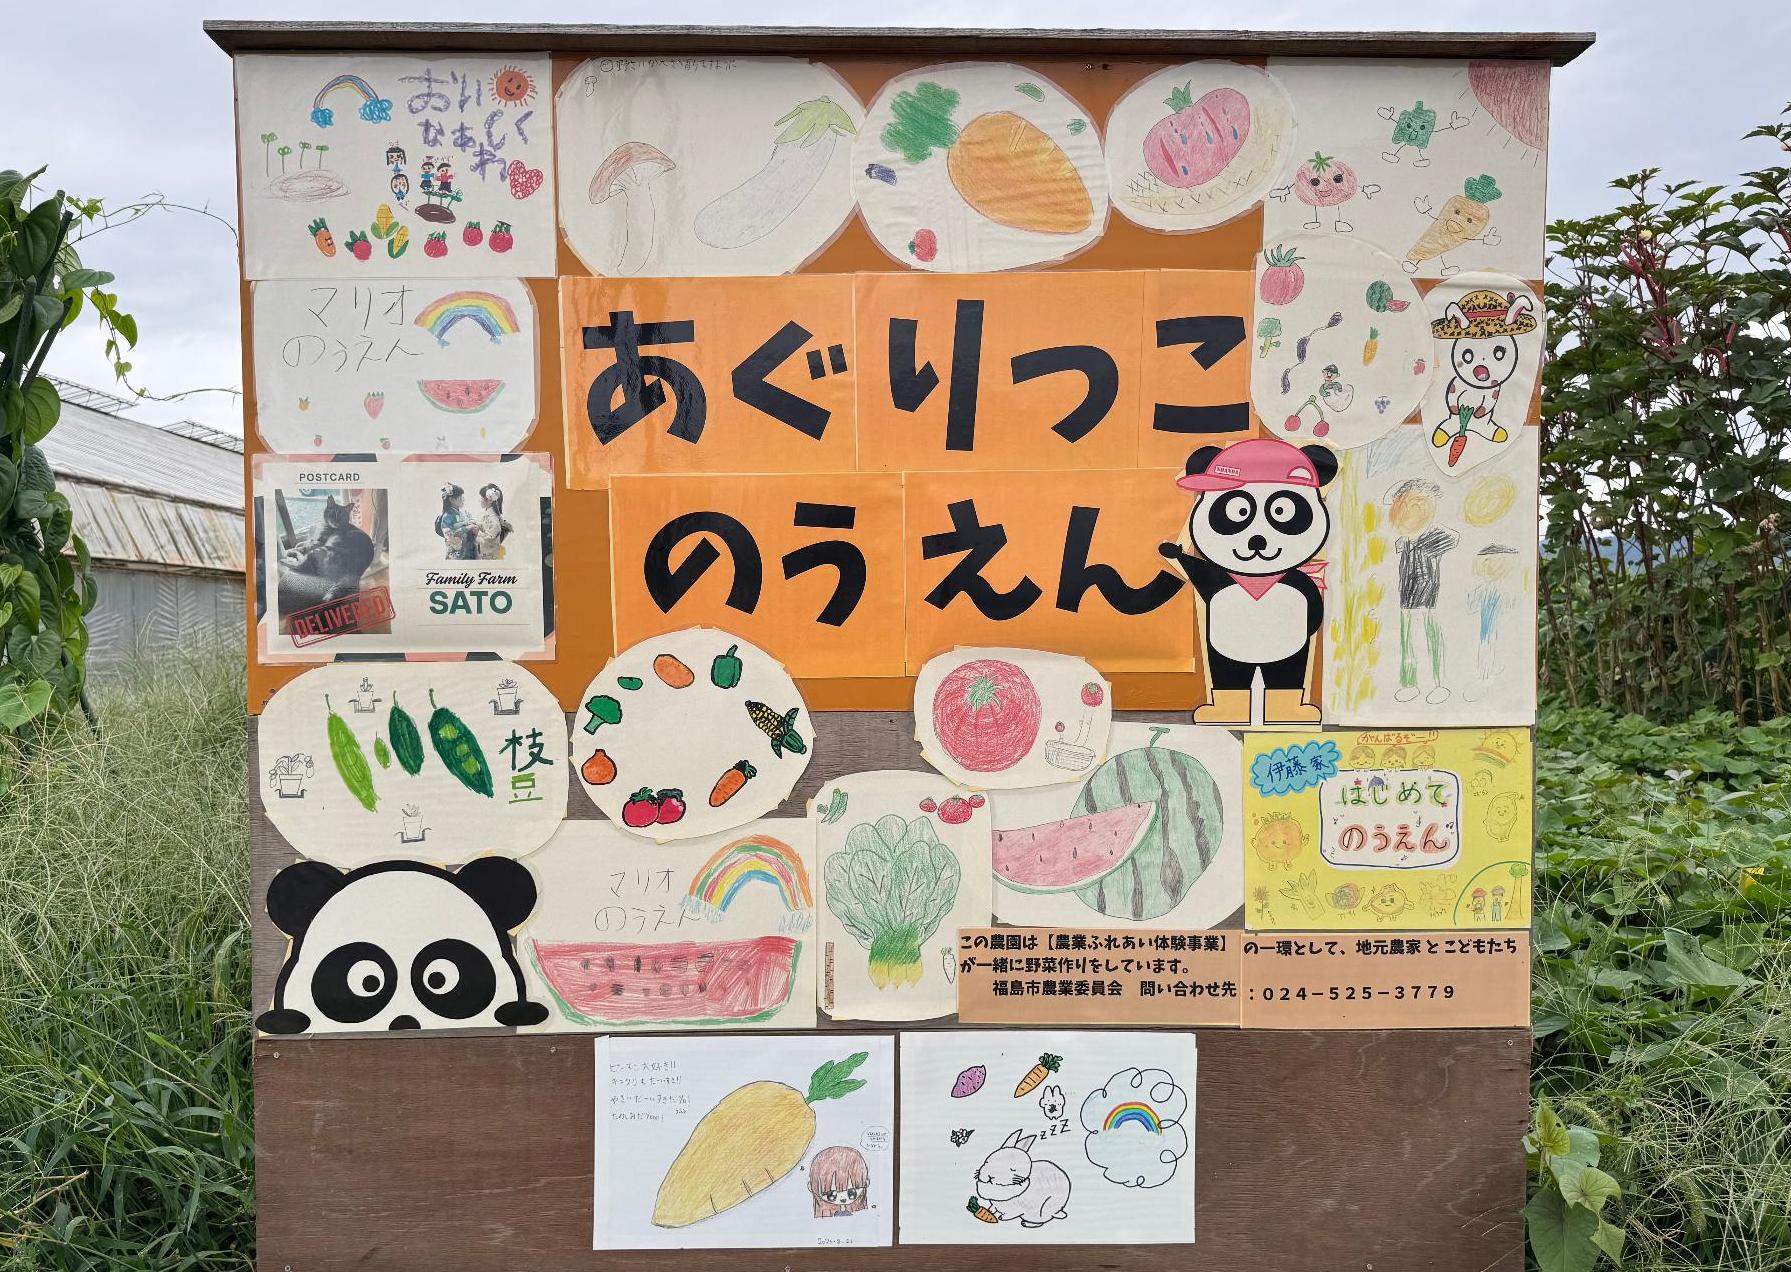 おいしく
なぁれ
マリオ
のうえん
あぐりっこ
のうえん
POSTCARD
DELIVERED
Family Farm
SATO
枝
豆
マリオ
のうえん
がんばるぞー!!
伊藤家
はじめて
のうえん
この農園は【農業ふれあい体験事業】の一環として、地元農家とこどもたち
が一緒に野菜作りをしています。
福島市農業委員会 問い合わせ先:024-525-3779
ピーマン大好き!!
zzz